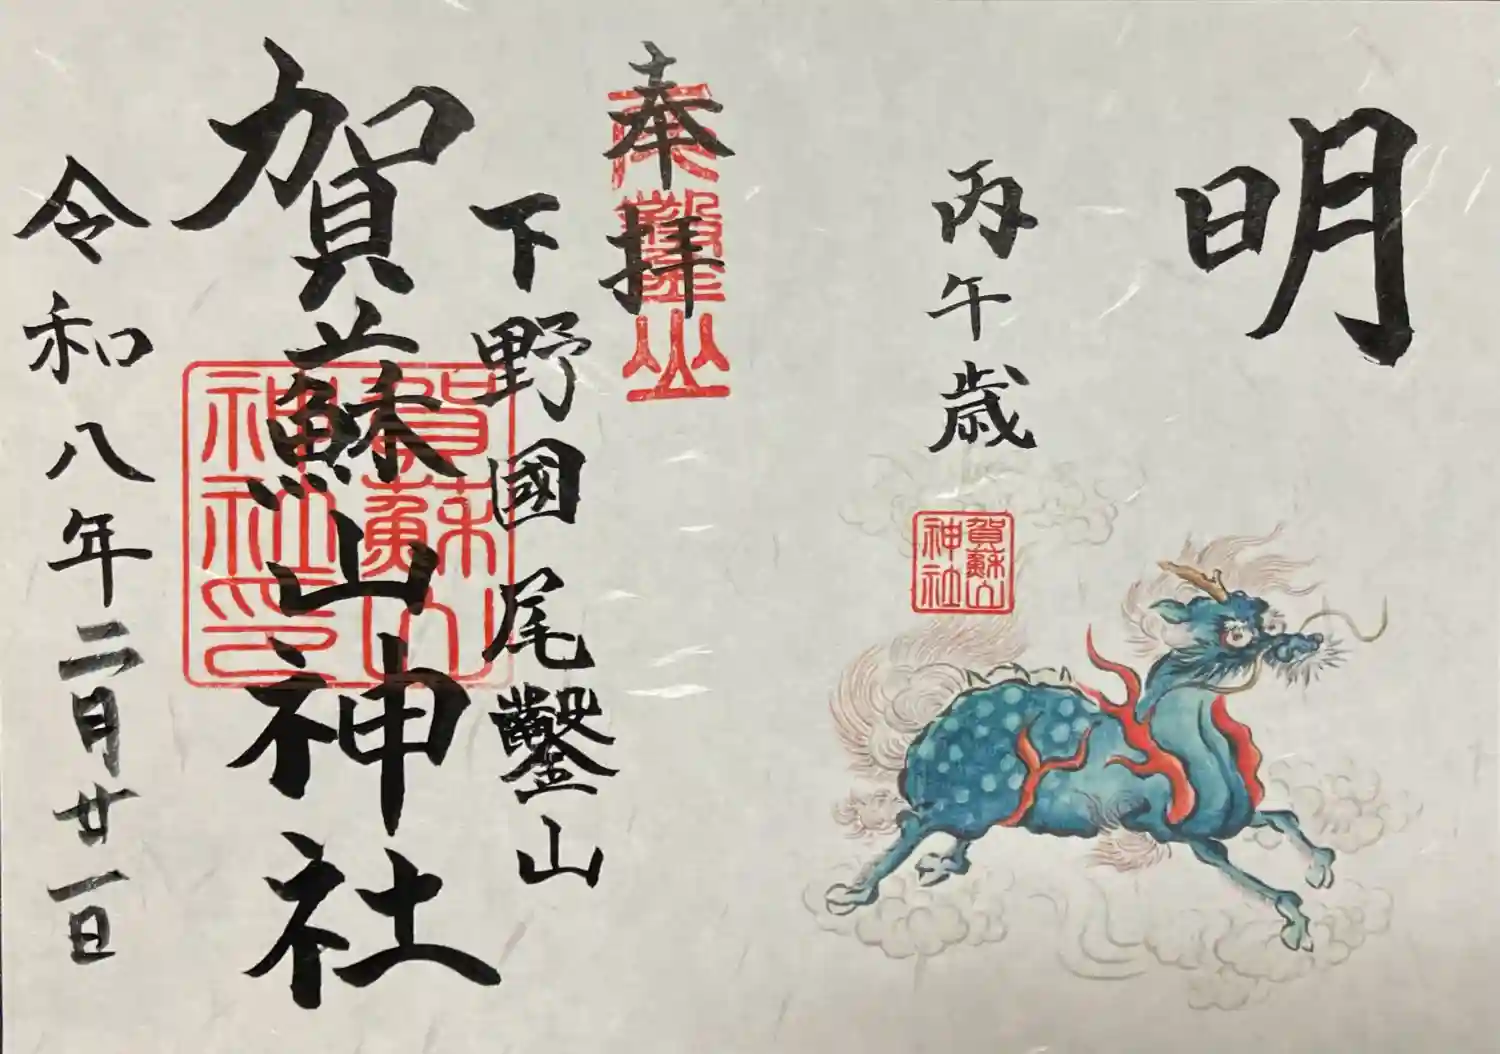 明
丙午歳
賀蘇山
神社
奉拝
尾鑿山
下野國尾鑿山
賀蘇山神社
賀蘇山
神社印
令和八年二月廿一日